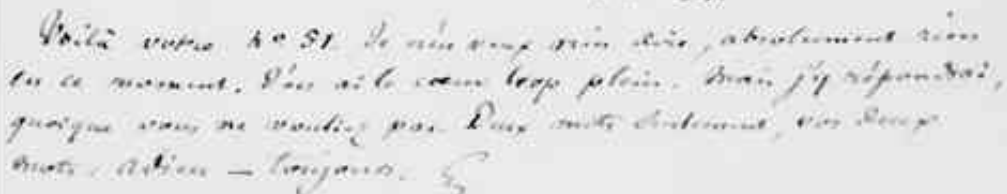 Voilà votre No 51. Je n'en veux rien dire, absolument rien
en ce moment. J'en ai le cœur trop plein. Mais j'y répondrai,
quoique vous ne vouliez pas. Deux mots seulement, vos deux
mots. Adieu — toujours.